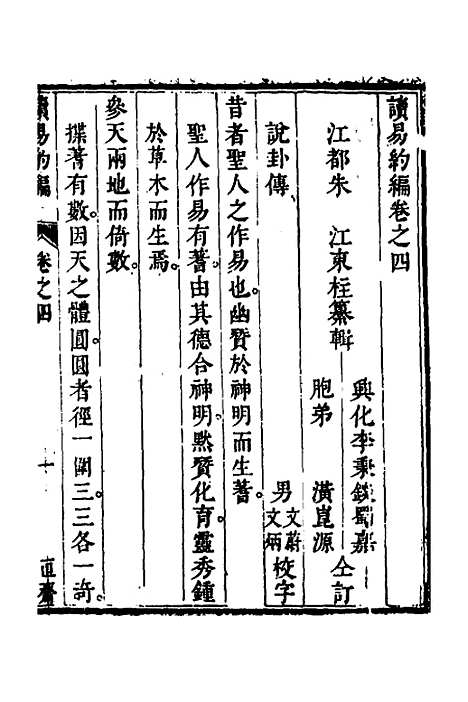 讀易約編卷之四
江都朱 江東柱纂輯
興化李秉鋑蜀嘉
胞弟 潢崑源 仝訂
說卦傳
男文蔚
文炳 校字
昔者聖人之作易也幽贊於神明而生蓍。
聖人作易有蓍由其德合神明。黙贊化育。靈秀鍾
於草木而生焉。
參天兩地而倚數。
揲蓍有數。因天之體圓。圓者徑一圍三。三各一奇。
讀易約編 卷之四 十